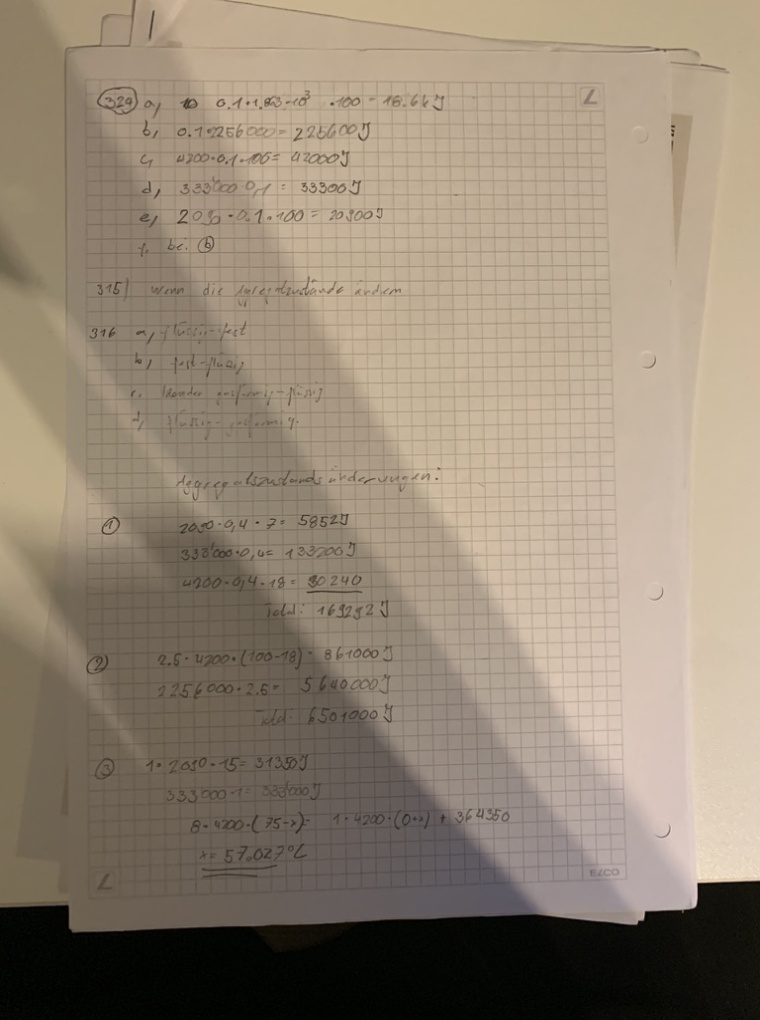 324 a, 0.1·1.863·10³ ·100 = 18.6kJ
b, 0.1·2256000 = 225600J
c, 4200·0.1·100 = 42000J
d, 333'000·0,1 = 33300J
e, 2090·0.1·100 = 20900J
f, bei (b)
315) wenn die ändern
316 a, flüssig-fest
b, fest-flüssig
c, gasförmig-flüssig
d, flüssig-gasförmig.
Aggregatszustandsänderungen:
① 2090·0,4·7 = 5852J
333'000·0,4 = 133200J
4200·0,4·18 = 30240
Total: 169292J
② 2.5·4200·(100-18) = 861000J
2256000·2.5 = 5640000J
Total: 6501000J
③ 1·2090·15 = 31350J
333000·1 = 333000J
8·4200·(75-x) = 1·4200·(0+x) + 364350
x = 57.027°C
ELCO